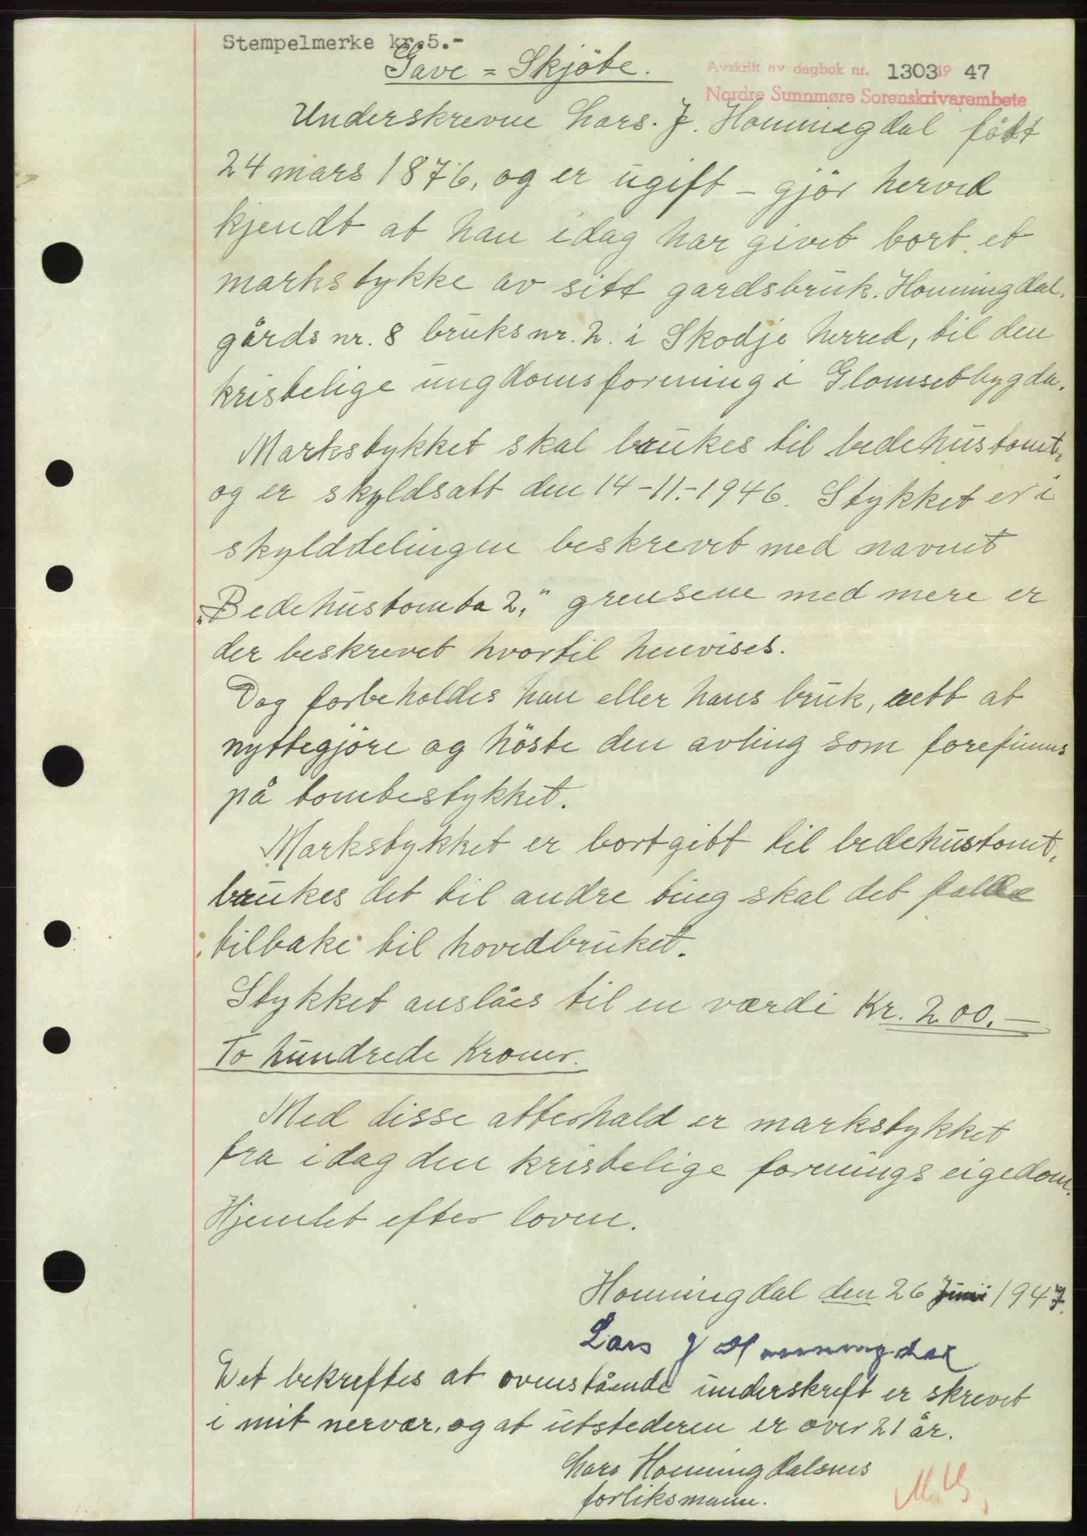 Stempelmerke kr.5.-
Gave = Skjöte.
Avskrift av dagbok nr. 1303 19 47
Nordre Sunnmøre Sorenskrivarembete
Underskrevne Lars. J. Honningdal födt
24 mars 1876, og er ugift – gjör herved
kjendt at han idag har givet bort et
markstykke av sitt gardsbruk. Honningdal.
gårds nr. 8 bruks nr. 2. i Skodje herred, til den
kristelige ungdomsforening i Glomsetbygda.
Markstykket skal brukes til bedehustomt,
og er skyldsatt den 14-11.-1946. Stykket er i
skylddelingen beskrevet med navnet
„Bedehustomta 2," grensene med mere er
der beskrevet hvortil henvises.
Dog forbeholdes han eller hans bruk, rett at
nyttegjöre og höste den avling som forefinnes
på tomtestykket.
Markstykket er bortgitt til bedehustomt,
brukes det til andre ting skal det falle
tilbake til hovedbruket.
Stykket anslåes til en værdi Kr. 200.–
To hundrede Kroner.
Med disse atterhald er markstykket
fra idag den kristelige forenings eigedom.
Hjemlet efter loven.
Honningdal den 26 Juni 1947.
Lars J Honningdal
Det bekreftes at ovenstående underskrift er skrevet
i mit nervær, og at utstederen er over 21 år.
Lars Honningdalsnes
forliksmann.